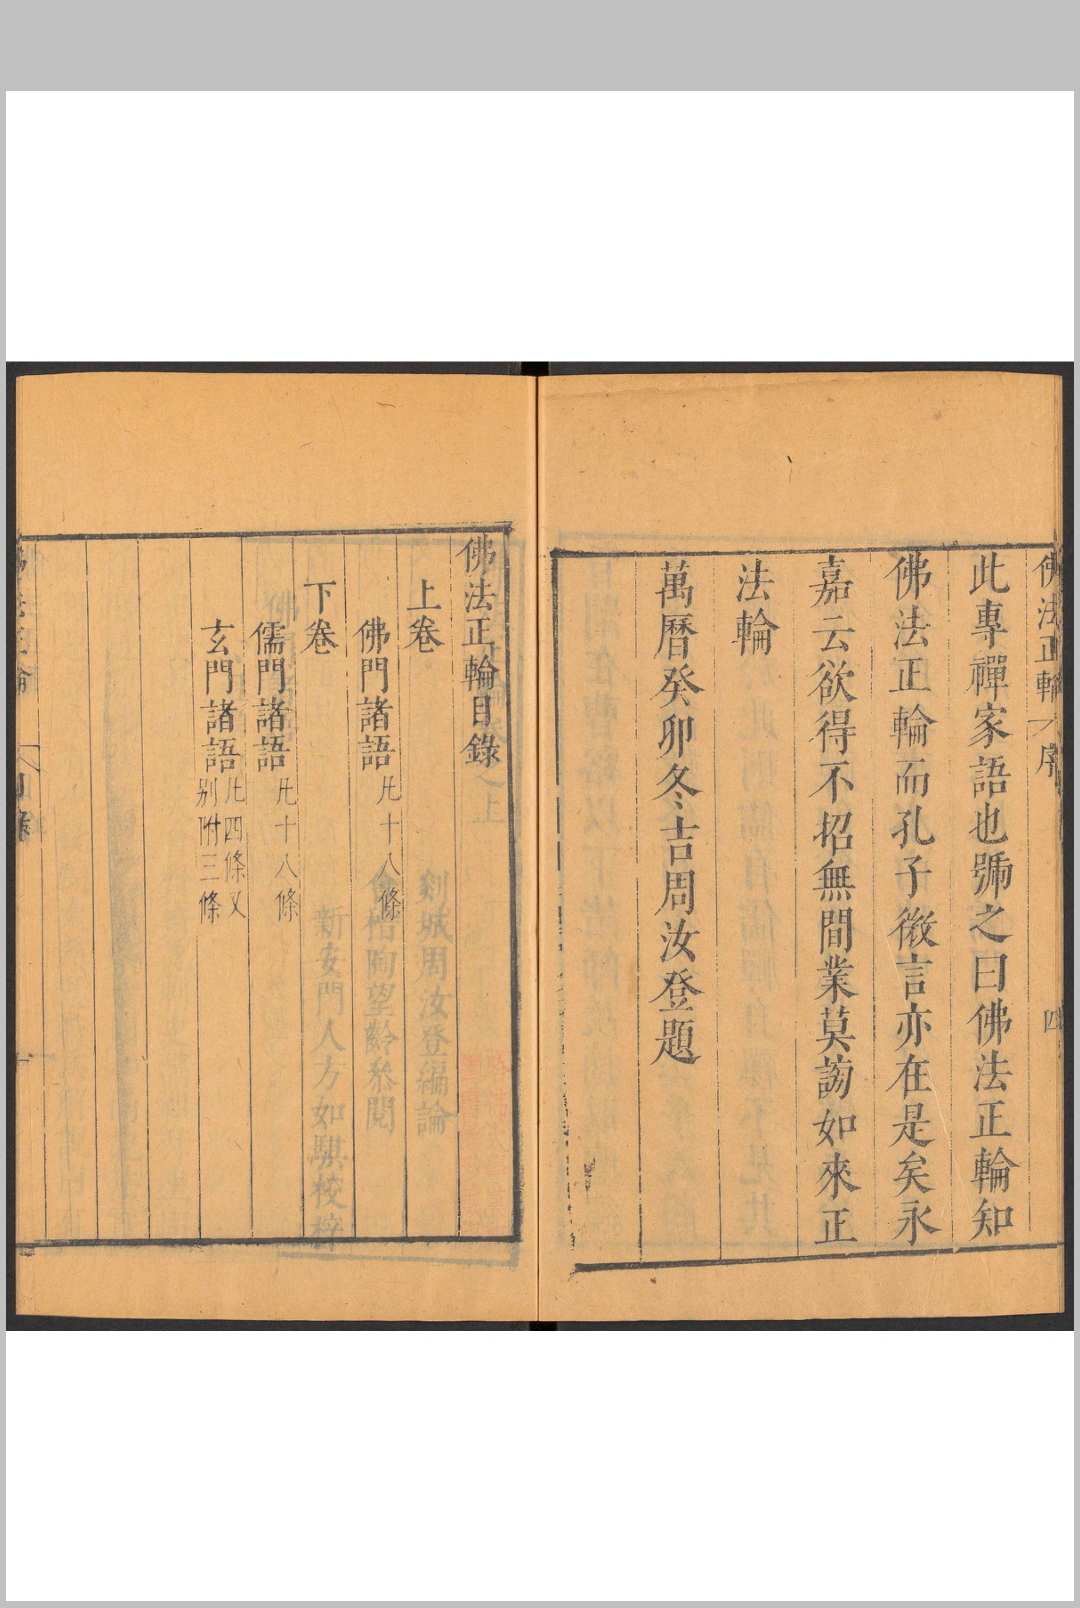 佛法正輪
序
四
此專禪家語也號之曰佛法正輪知
佛法正輪而孔子微言亦在是矣永
嘉云欲得不招無間業莫謗如來正
法輪
萬曆癸卯冬吉周汝登題
佛法正輪目錄
上卷
佛門諸語凡十八條
下卷
儒門諸語凡十八條
玄門諸語凡四條又
別附三條
剡城周汝登編論
會稽陶望齡叅閱
新安門人方如騏校梓